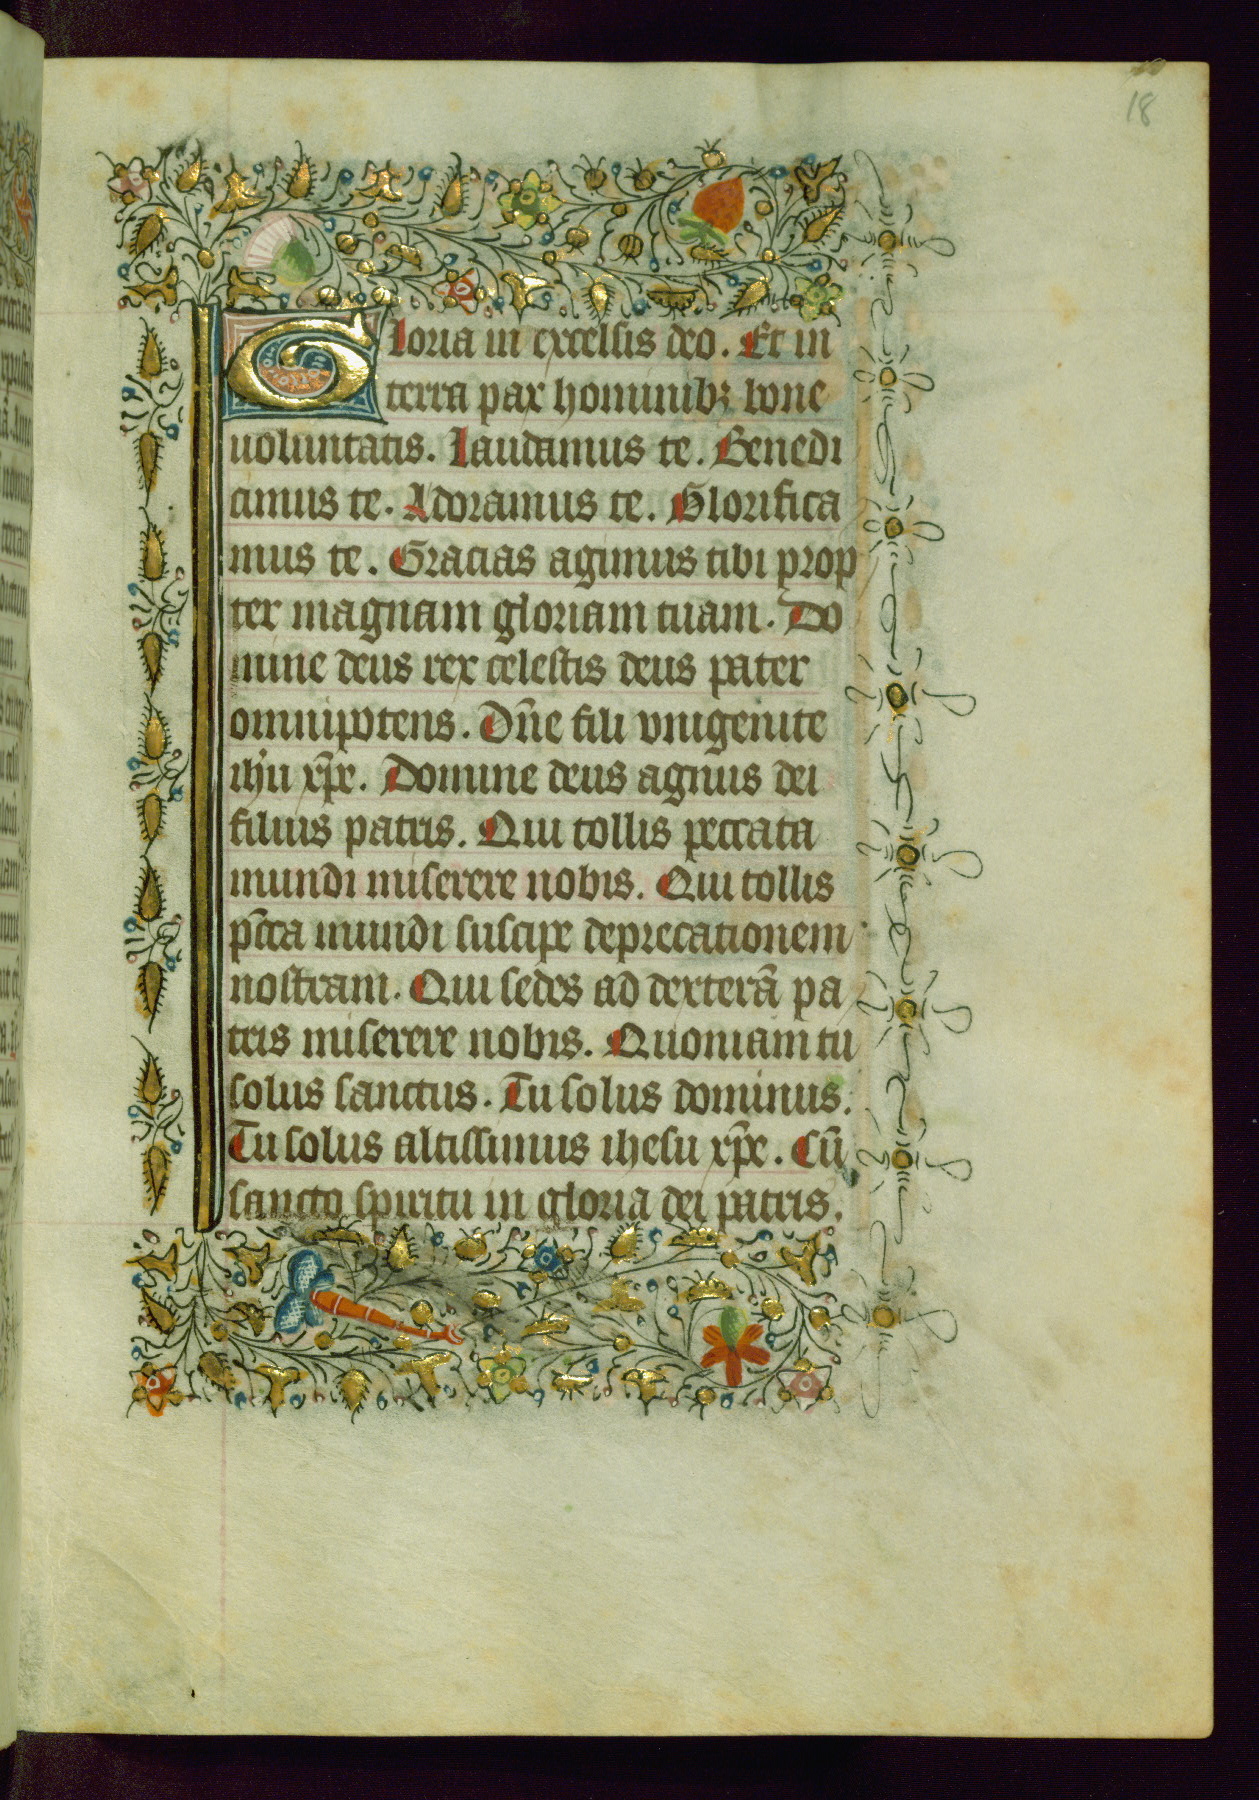 18
Gloria in excelsis deo. Et in
terra pax hominibꝫ bone
uoluntatis. Laudamus te. Benedi
cimus te. Adoramus te. Glorifica
mus te. Gracias agimus tibi prop
ter magnam gloriam tuam. Do
mine deus rex celestis deus pater
omnipotens. Dn̄e fili vnigenite
ihū xp̄e. Domine deus agnus dei
filius patris. Qui tollis peccata
mundi miserere nobis. Qui tollis
pc̄ca mundi suscipe deprecationem
nostram. Qui sedes ad dexterā pa
tris miserere nobis. Quoniam tu
solus sanctus. Tu solus dominus.
Tu solus altissimus ihesu xp̄e. Cū
sancto spiritu in gloria dei patris.